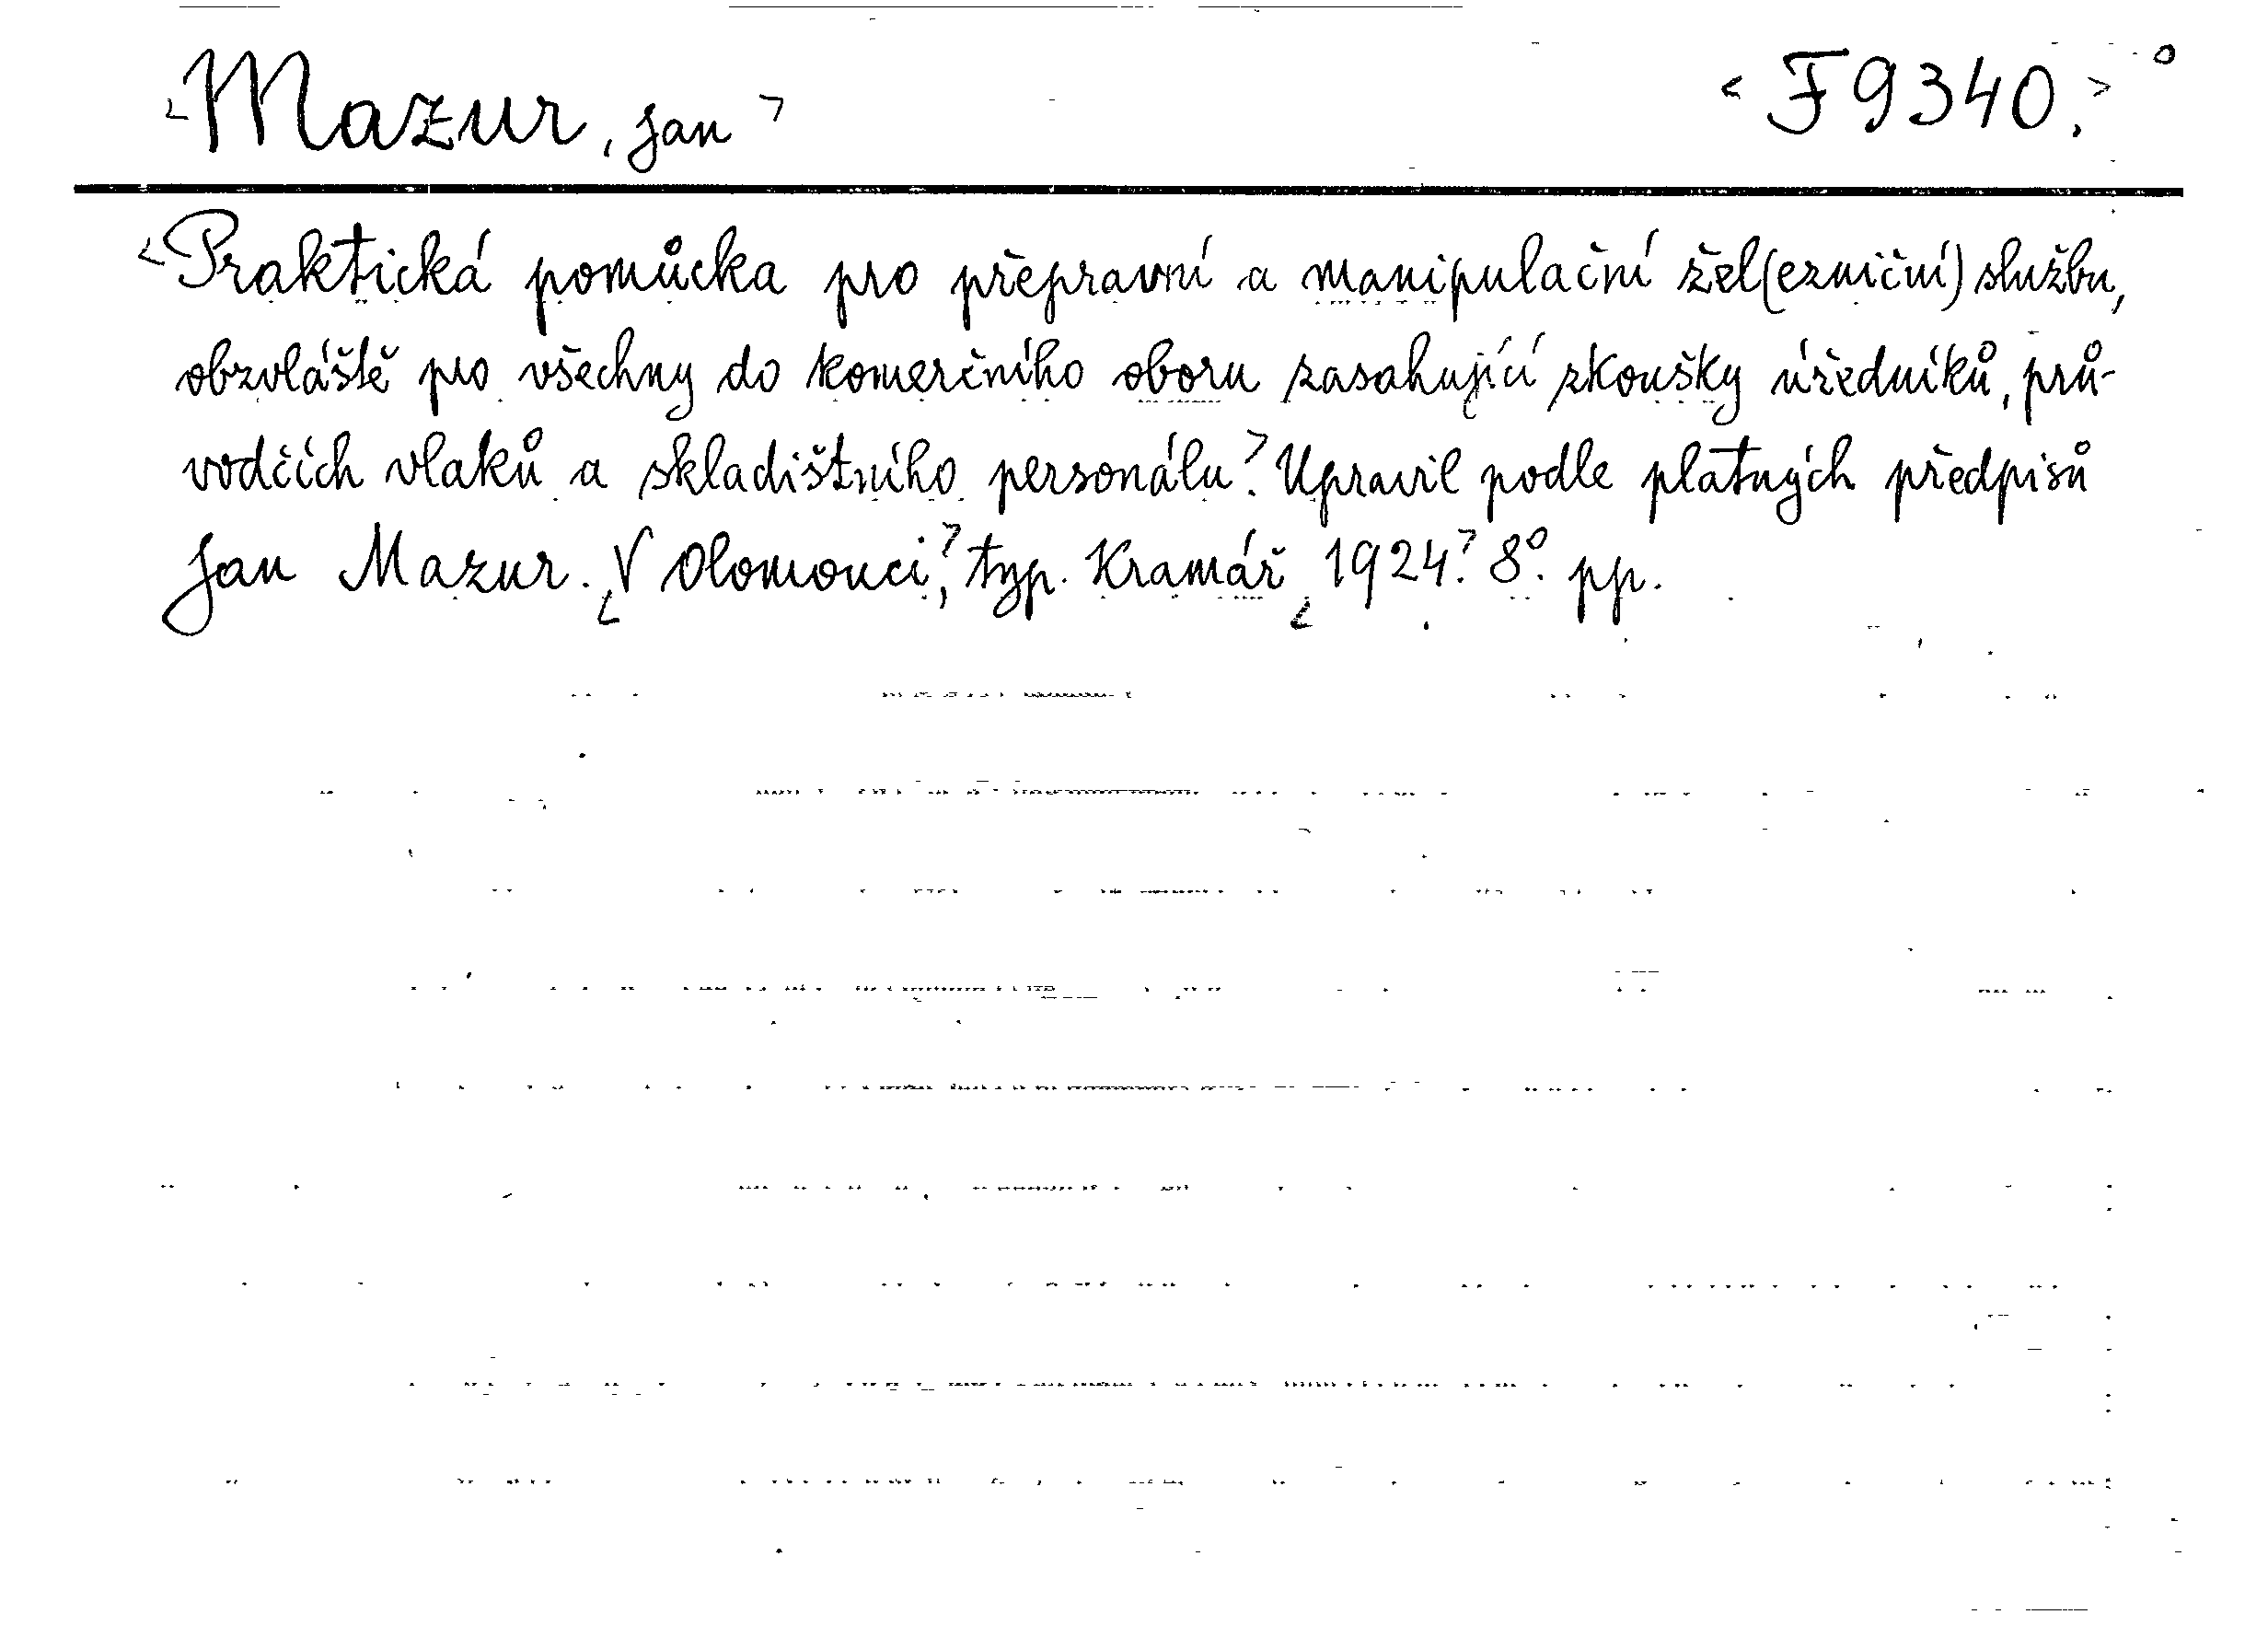 <Mazur, Jan> <F 9340.> o
<Praktická pomůcka pro přepravní a manipulační žel(ezniční) službu,
obzvláště pro všechny do komerčního oboru zasahující zkoušky úředníků, prů-
vodčích vlaků a skladištního personálu>. Upravil podle platných předpisů
Jan Mazur. <V Olomouci>, typ. Kramář <1924>. 8°. pp.